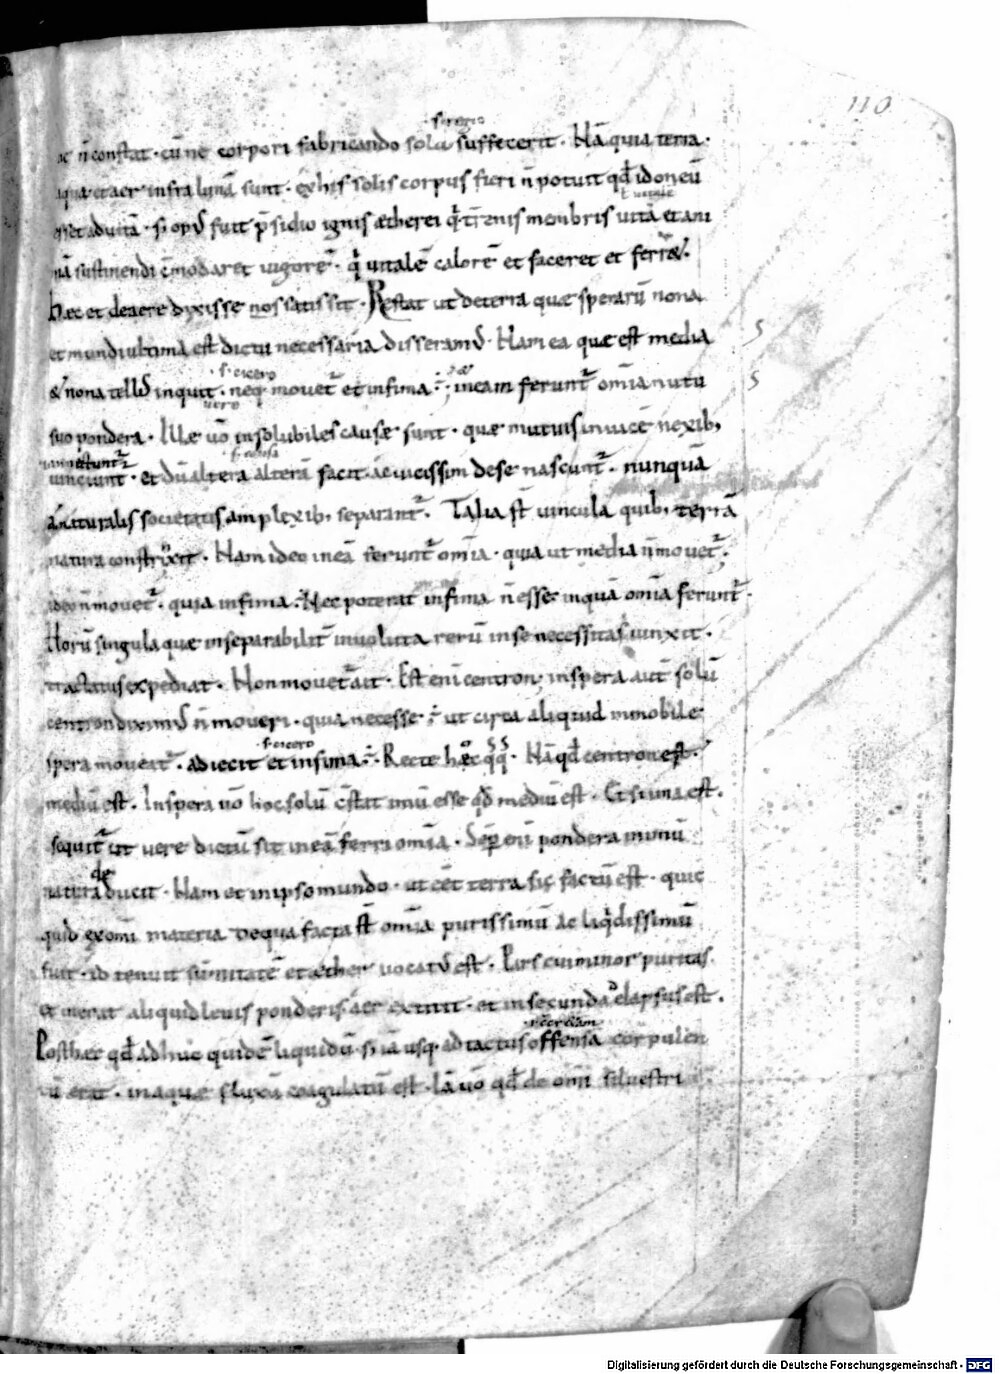 110
s. regio
ac n̄ constat · cū ne corpori fabricando sola suffecerit · Nā quia terra ·
aqua et aer infra lunā sunt · ex his solis corpus fieri n̄ potuit qđ idoneū
ł uitale
esset ad uitā · s; op' fuit p̄sidio ignis ætherei q' t'renis membris uitā et ani
mā sustinendi c̄modaret uigorē · q' uitalē calorē et faceret et ferret ·
Hæc et de aere dixisse nos satis sit · Restat ut de terra quæ sperarū nona
et mundi ultima est dictu necessaria disseram' · Nam ea quæ est media
s. cicero
& nona tell' inquit · neq; mouet' et infima ē · in eam ferunt' omīa nutu
uero
suo pondera · Illæ uō insolubiles causæ sunt · quæ mutuis inuicē nexib;
s. causa
uinciunt · et dū altera alterā facit ac uicissim de se nascunt' · nunquā
a naturalis societatis amplexib; separant' · Talia st̄ uincula quib; terrā
natura constrixit · Nam ideo in eā ferunt' omīa · quia ut media n̄ mouet' ·
ideo n̄ mouet' · quia infima ē · Nec poterat infima n̄ esse in quā omīa ferunt' ·
Horū singula quæ inseparabilit' inuoluta rerū in se necessitas iunxit ·
tractatus expediat · Non mouet' ait · Est enī centron; in spera aut solū
centron diximus n̄ moueri · quia necesse ē ut circa aliquid inmobile
s. cicero
spera moueat' · adiecit et infima ē · Recte hæc qq; · Nā qđ centron est ·
mediū est · In spera uō hoc solū c̄stat imū esse qđ mediū est · Et si ima est ·
sequit' ut uere dictū sit in eā ferri omīa · Semp enī pondera in imū
de
natura ducit · Nam et in ipso mundo · ut eēt terra sic factū est · quic
quid ex omī materia de qua facta st̄ omīa purissimū ac liquidissimū
fuit · id tenuit sūmitatē et æther uocat' est · Pars cui minor puritas
et inerat aliquid leuis ponderis aer extitit · et in secunda delapsus est ·
Post hæc qđ adhuc quidē liquidū · s; iā usq; ad tactus offensa corpulen
tū erat · in aquæ fluxū coagulatū est · Iā uō qđ de omī siluestri
Digitalisierung gefördert durch die Deutsche Forschungsgemeinschaft - DFG